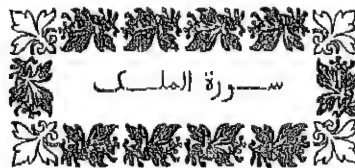 سورة الملك